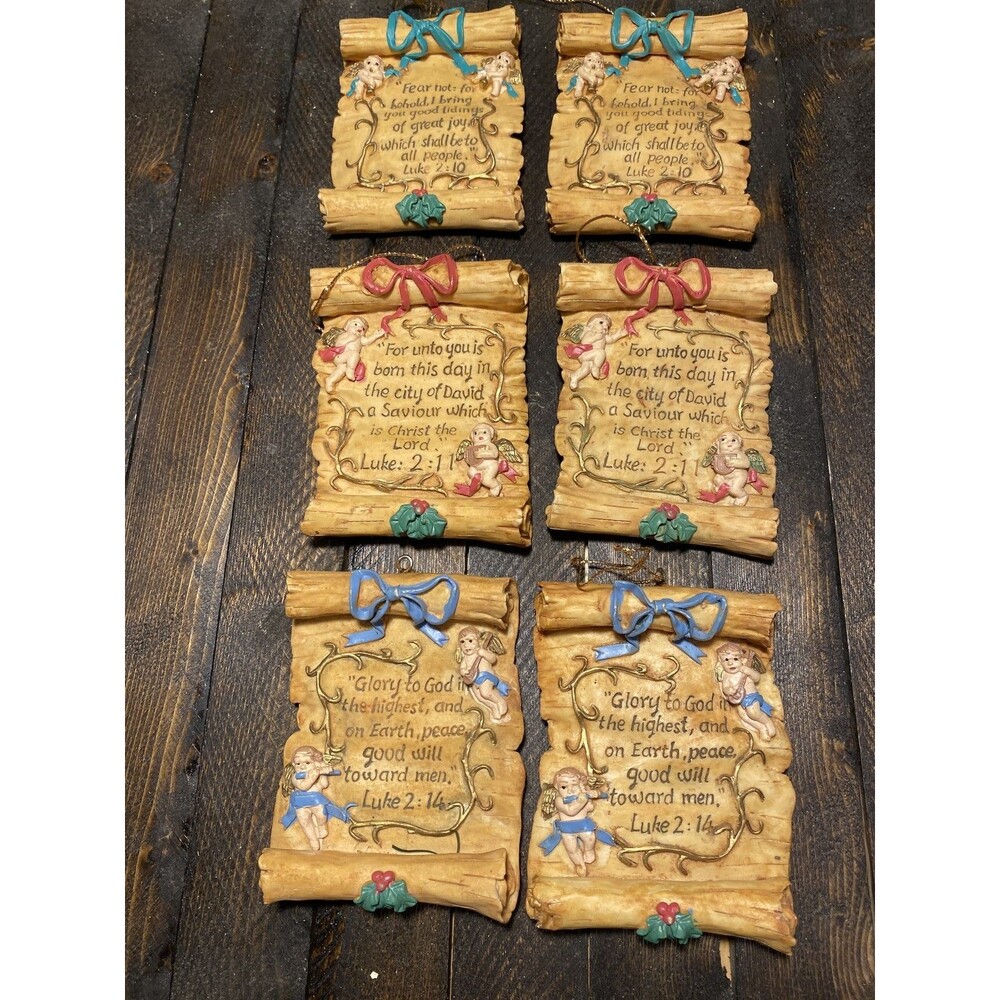 "Fear not: for
behold, I bring
you good tidings
of great joy,
which shall be to
all people."
Luke 2:10
"Fear not: for
behold, I bring
you good tidings
of great joy,
which shall be to
all people."
Luke 2:10
"For unto you is
born this day in
the city of David
a Saviour which
is Christ the
Lord."
Luke: 2:11
"For unto you is
born this day in
the city of David
a Saviour which
is Christ the
Lord."
Luke: 2:11
"Glory to God in
the highest, and
on Earth, peace,
good will
toward men."
Luke 2:14
"Glory to God in
the highest, and
on Earth, peace,
good will
toward men."
Luke 2:14